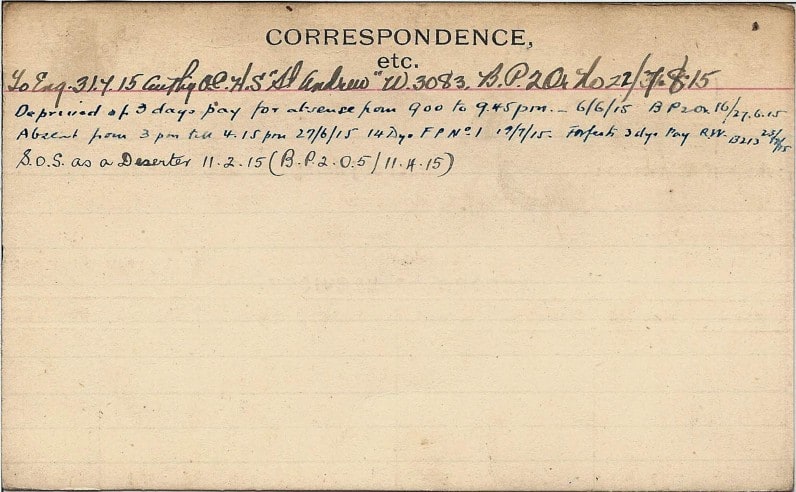 CORRESPONDENCE,
etc.
To Eng. 31.7.15 Authy O.C. H.S "St Andrew" W.3083. B.P. 2 Or. No 22/ 7.8.15
Deprived of 3 days pay for absense from 9.00 to 9.45 pm. — 6/6/15 B P 2 Or. 16/27.6.15
Absent from 3 pm till 4.15 pm 27/6/15 14 Dys F P No 1 Forfeits 3 dys Pay R.W. B213
S.O.S. as a Deserter 11.2.15 (B.P.2.O.5/11.4.15)